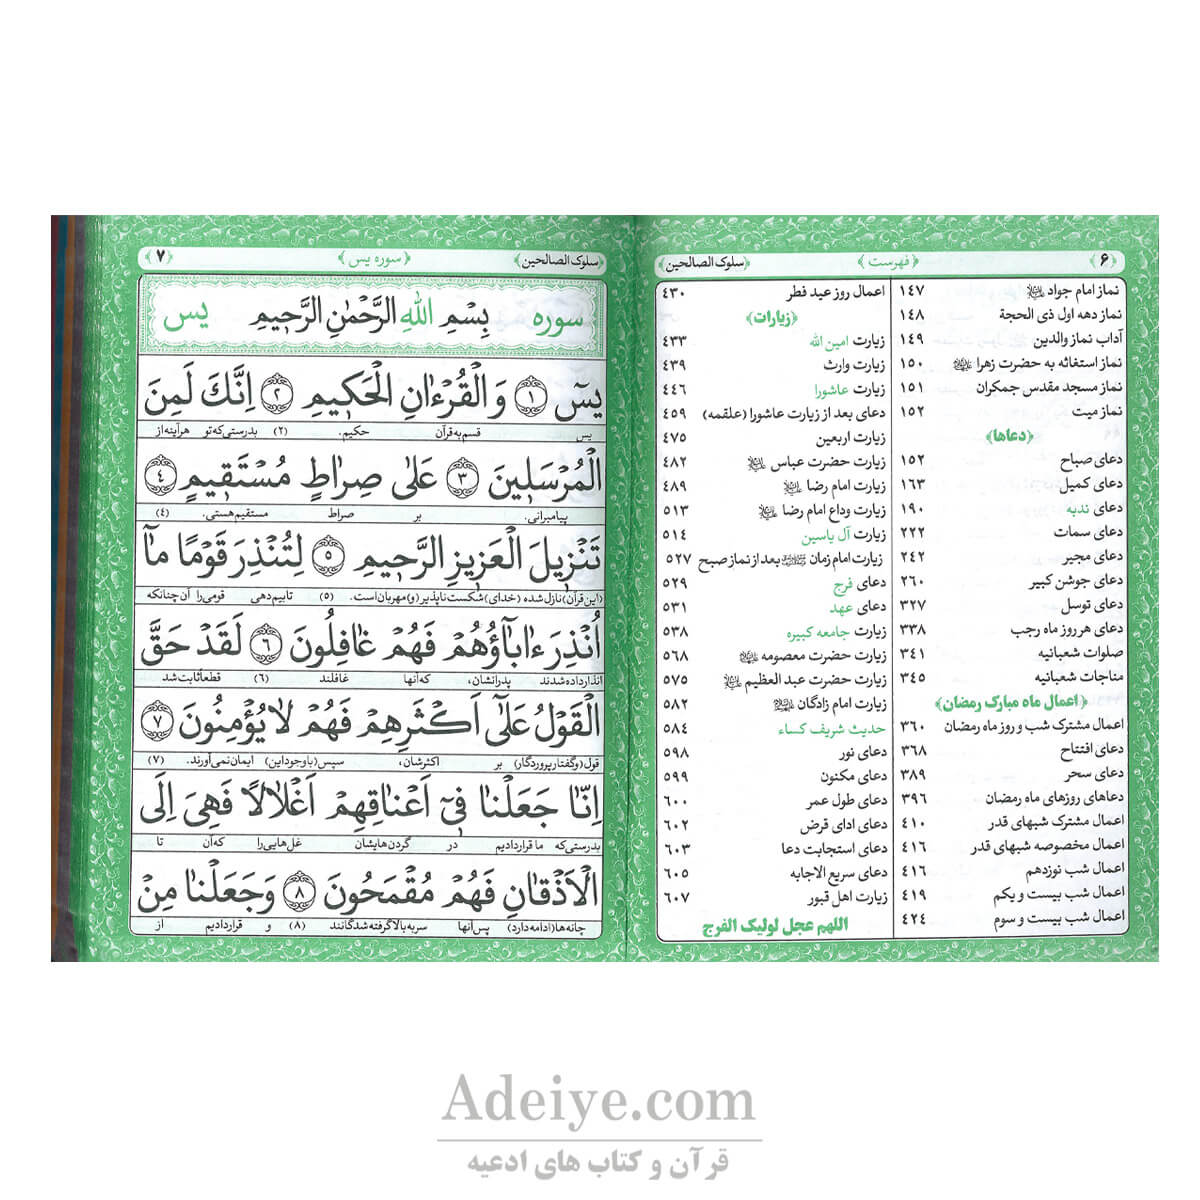 ﴿۶﴾ ﴿فهرست﴾ ﴿سلوک الصالحین﴾
نماز امام جواد ۱۴۷
نماز دهه اول ذی الحجة ۱۴۸
آداب نماز والدین ۱۴۹
نماز استغاثه به حضرت زهرا ۱۵۰
نماز مسجد مقدس جمکران ۱۵۱
نماز میت ۱۵۲
﴿دعاها﴾
دعای صباح ۱۵۲
دعای کمیل ۱۶۳
دعای ندبه ۱۹۰
دعای سمات ۲۲۲
دعای مجیر ۲۴۲
دعای جوشن کبیر ۲۶۰
دعای توسل ۳۲۷
دعای هر روز ماه رجب ۳۳۸
صلوات شعبانیه ۳۴۱
مناجات شعبانیه ۳۴۵
﴿اعمال ماه مبارک رمضان﴾
اعمال مشترک شب و روز ماه رمضان ۳۶۰
دعای افتتاح ۳۶۸
دعای سحر ۳۸۹
دعاهای روزهای ماه رمضان ۳۹۶
اعمال مشترک شبهای قدر ۴۱۰
اعمال مخصوصه شبهای قدر ۴۱۶
اعمال شب نوزدهم ۴۱۶
اعمال شب بیست و یکم ۴۱۹
اعمال شب بیست و سوم ۴۲۴
اعمال روز عید فطر ۴۳۰
﴿زیارات﴾
زیارت امین الله ۴۳۳
زیارت وارث ۴۳۹
زیارت عاشورا ۴۴۶
دعای بعد از زیارت عاشورا (علقمه) ۴۵۹
زیارت اربعین ۴۷۵
زیارت حضرت عباس ۴۸۲
زیارت امام رضا ۴۸۹
زیارت وداع امام رضا ۵۱۳
زیارت آل یاسین ۵۱۴
زیارت امام زمان بعد از نماز صبح ۵۲۷
دعای فرج ۵۲۹
دعای عهد ۵۳۱
زیارت جامعه کبیره ۵۳۸
زیارت حضرت معصومه ۵۶۸
زیارت حضرت عبد العظیم ۵۷۵
زیارت امام زادگان ۵۸۲
حدیث شریف کساء ۵۸۴
دعای نور ۵۹۸
دعای مکنون ۵۹۹
دعای طول عمر ۶۰۰
دعای ادای قرض ۶۰۲
دعای استجابت دعا ۶۰۳
دعای سریع الاجابه ۶۰۵
زیارت اهل قبور ۶۰۷
اللهم عجل لولیک الفرج
﴿سلوک الصالحین﴾ ﴿سوره یس﴾ ﴿۷﴾
سوره بِسْمِ اللهِ الرَّحْمٰنِ الرَّحیمِ یس
یسٓ ﴿۱﴾ وَ الْقُرْءٰانِ الْحَکیمِ ﴿۲﴾ اِنَّکَ لَمِنَ
یس قسم به قرآن حکیم. (۲) بدرستی که تو هر آینه از
الْمُرْسَلینَ ﴿۳﴾ عَلٰی صِراطٍ مُسْتَقیمٍ ﴿۴﴾
پیامبرانی. بر صراط مستقیم هستی. (۴)
تَنْزیلَ الْعَزیزِ الرَّحیمِ ﴿۵﴾ لِتُنْذِرَ قَوْمًا مآ
(این قرآن) نازل شده (خدای) شکست ناپذیر (و) مهربان است. (۵) تا بیم دهی قومی را آن چنانکه
اُنْذِرَ ءٰابآؤُهُمْ فَهُمْ غافِلُونَ ﴿۶﴾ لَقَدْ حَقَّ
انذار داده شدند پدرانشان، که آنها غافلند (۶) قطعاً ثابت شد
الْقَوْلُ عَلٰٓی اَکْثَرِهِمْ فَهُمْ لا یُؤْمِنُونَ ﴿۷﴾
قول (و گفتار پروردگار) بر اکثرشان، سپس (با وجود این) ایمان نمی آورند. (۷)
اِنّا جَعَلْنا فیٓ اَعْناقِهِمْ اَغْلالًا فَهِیَ اِلَی
بدرستی که ما قرار دادیم در گردن هایشان غل هایی را که آن تا
الْاَذْقانِ فَهُمْ مُقْمَحُونَ ﴿۸﴾ وَ جَعَلْنا مِنْ
چانه ها (ادامه دارد) پس آنها سر به بالا گرفته شدگانند (۸) و قرار دادیم از
Adeiye.com
قرآن و کتاب های ادعیه